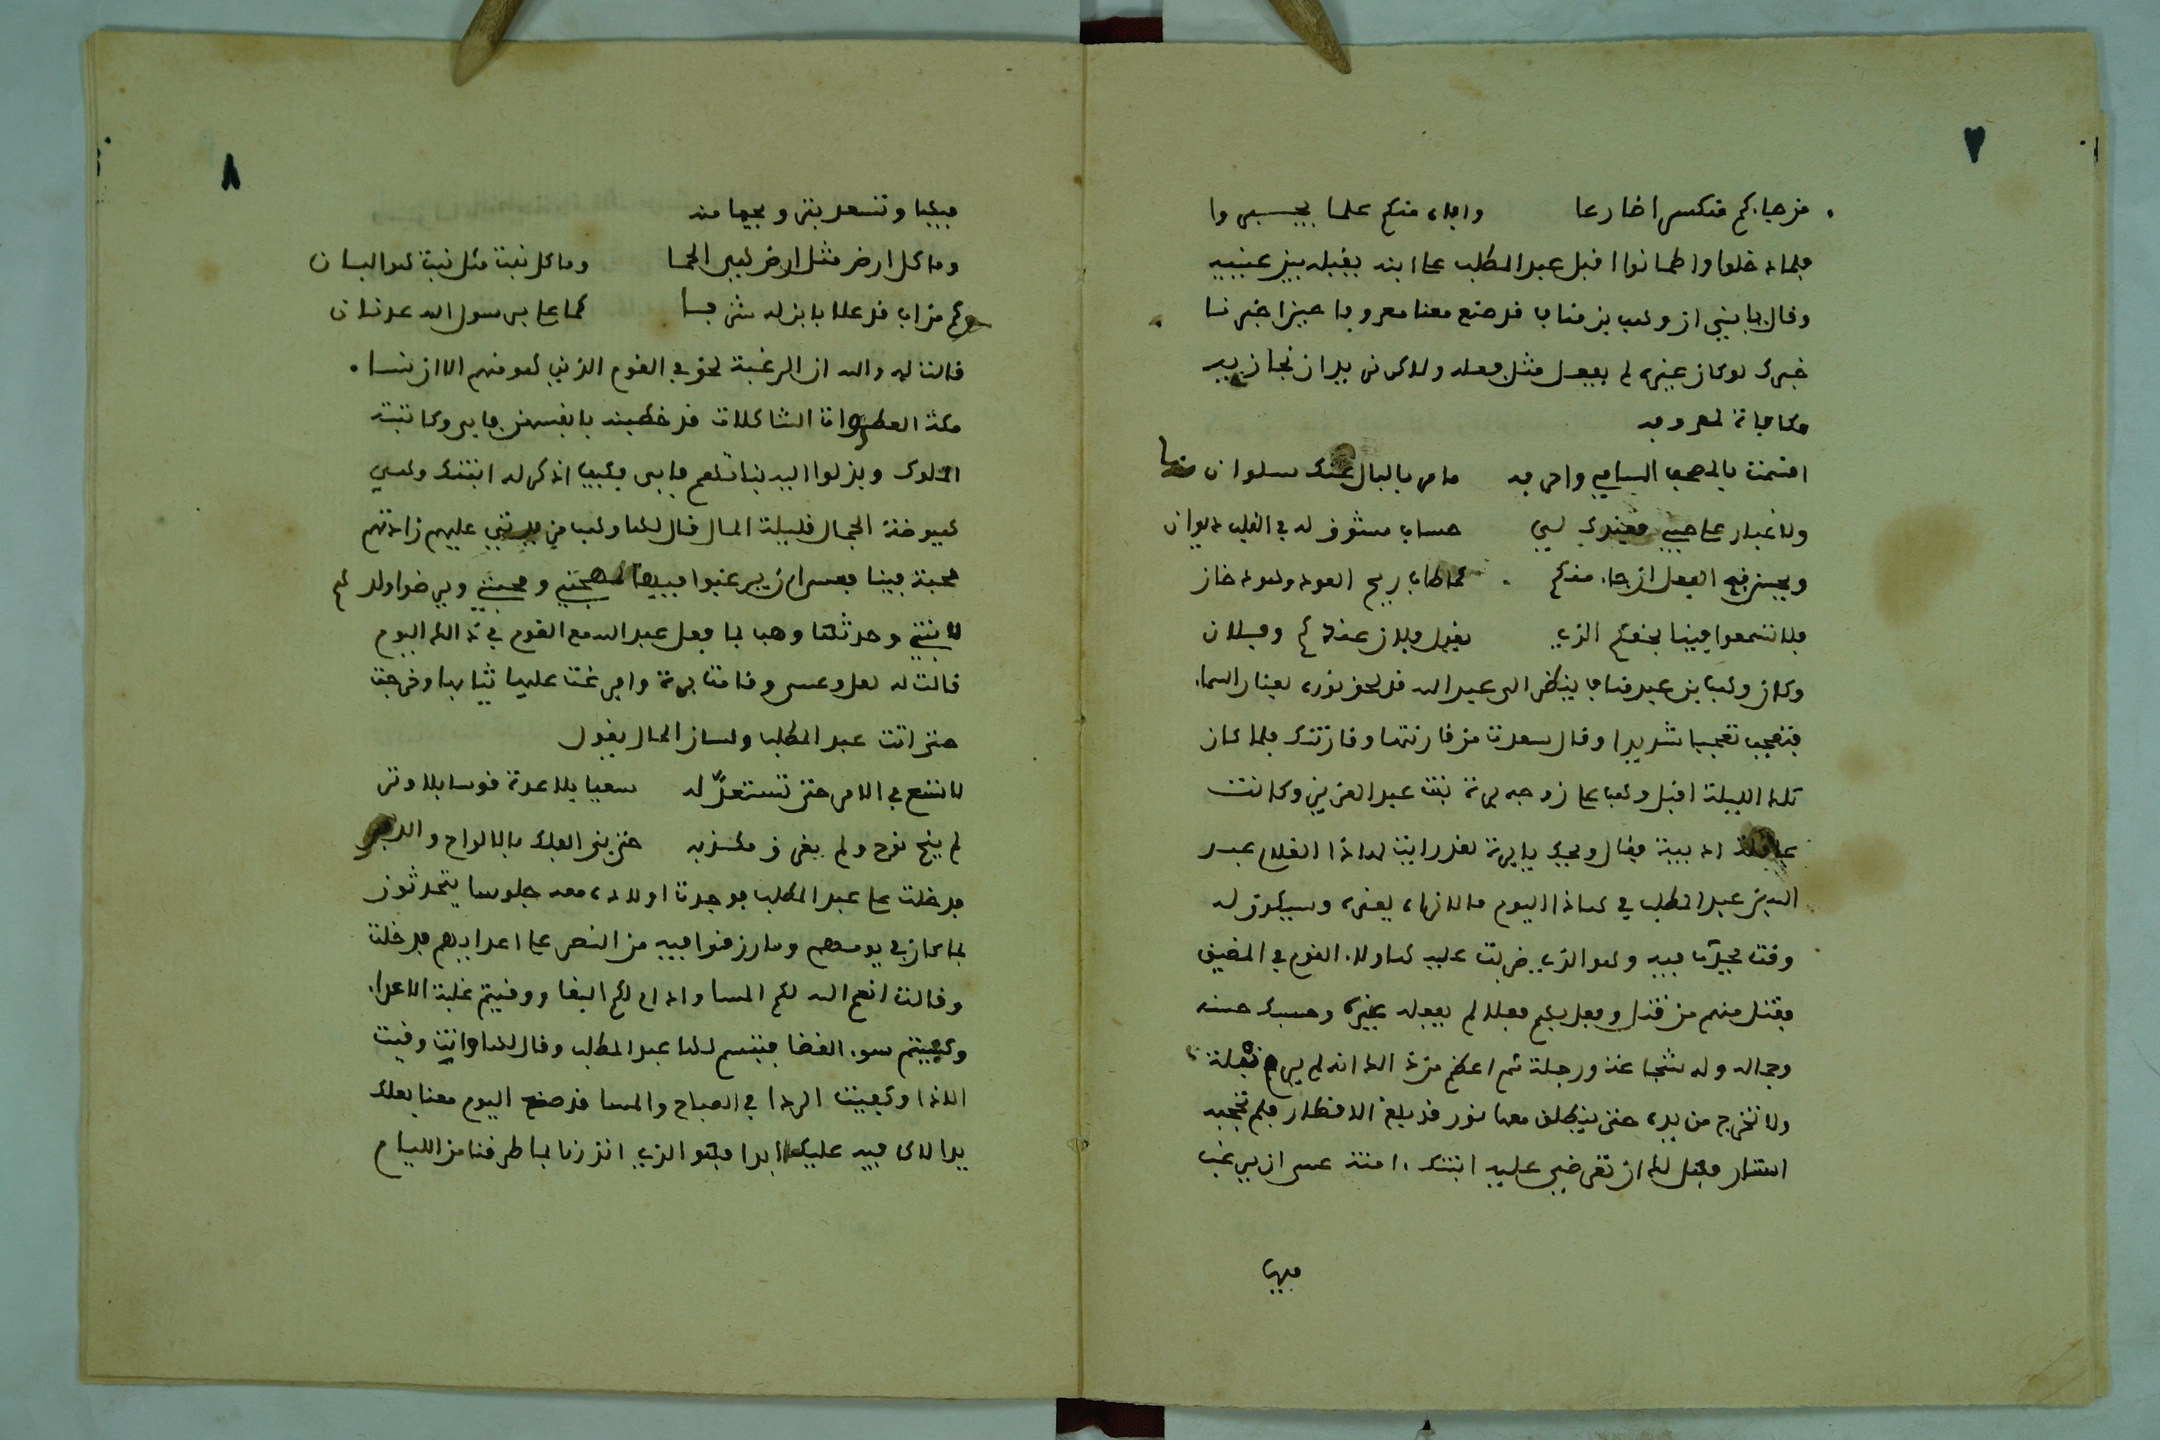 ٧
من جاءكم منكسرا ضارعا وافاه منكم علما يحسبوا
فلما دخلوا واطمانوا اقبل عبد المطلب على ابنه يقبله بين عينيه
وقال يا بني ان وهب بن مناف قد صنع معنا معروفا حين اخبرنا
خبرك لو كان غيره لم يفعل مثل فعله ولاكن لا بد ان نجازيه
مكافاة لمعروفه
اقسمت بالمصحف السامي واحرفه ما مر بالبال عندك سلوان
ولا غبار على حبي فعندك لي حساب مشوق له في القلب ديوان
ويحسن الفعل ان جاء منكم كما طاب ريح العود وهو دخان
فلا تسمعوا فينا بحقكم الذي يقول فلان عندكم وفلان
وكان وهب بن عبد مناف ينظر الى عبد الله قد لحق نوره لعنان السماء
فتعجب تعجبا شديدا وقال سعدت من قارنتها وقارنتك فلما كان
تلك الليلة اقبل وهب على زوجه برة بنت عبد العزيز وكانت
عاقلة اديبة فقال ويحك يا برة لقد رايت لهاذا الغلام عبد
الله بن عبد المطلب في هاذا اليوم ما لا نراه يعني وسيكون له
وقت عجيب فيه وهو الذي ضربت عليه هاولاء القوم في المضيق
فقتل منهم من قتل وفعل بكم فعلا لم يفعله غيره وحسبك حسنه
وجماله وله شجاعة ورجلة ثم اعظم من ذالك انه لم يرم نبلة
ولا تخرج من يده حتى ينطلق معها نور قد بلغ الاقطار فلم تخجبه
استار فهل لك ان تعرضي عليه ابنتك امنة عسى ان يرغب
فيها
٨
فيها وتسعد بتى ويجيها منه
وما كل ارض مثل ارض هي الحما وما كل نبت مثل نبت هو البان
وكم من اب قد علا بابن له شرفا كما على برسول الله عدنان
قالت له والله ان الرغبة لحق في القوم الذي هو منهم الا ان نسا
مكة العطرات الشاكلات قد خطبنه بانفسهن فابى وكاتبته
الملوك وبذلوا اليه بناتهم فابى فكيف اذكر له ابنتك وهي
مبيوضة الجمال قليلة المال قال لها وهب عليهم زادتهم
محبة فينا فعسى ان يرغبوا فيها لصحبتي ومحبتي ويرضوا ولدهم
لابنتي وحدثها وهب بما فعل عبد الله مع القوم في ذالك اليوم
قالت له لعل وعسى وقامت برة وافرغت عليها ثيابها وخرجت
حتى اتت عبد المطلب ولسان الحال يقول
لا تسع في الامر حتى تستعد له سعيا بلا عدة قوسا بلا وتر
لم ينج نوح ولم يغرق مكذبه حتى بنى الفلك بالالواح والدسر
فدخلت على عبد المطلب فوجدت اولاده معه جلوسا يتحدثون
بما كان في يومهم وما رزقوا فيه من النصر على اعدايهم فدخلت
وقالت انعم الله لكم المسا وادام لكم البقا ووقيتم غلبة الاعداء
وكفيتم سوء القضا فتبسم لها عبد المطلب وقال لها وانت وقيت
الاذا وكفيت الردا في الصباح والمسا قد صنع اليوم معنا بعلك
يدا لاكافيه عليها ابدا فهو الذي انذرنا بما طرقنا من الليام